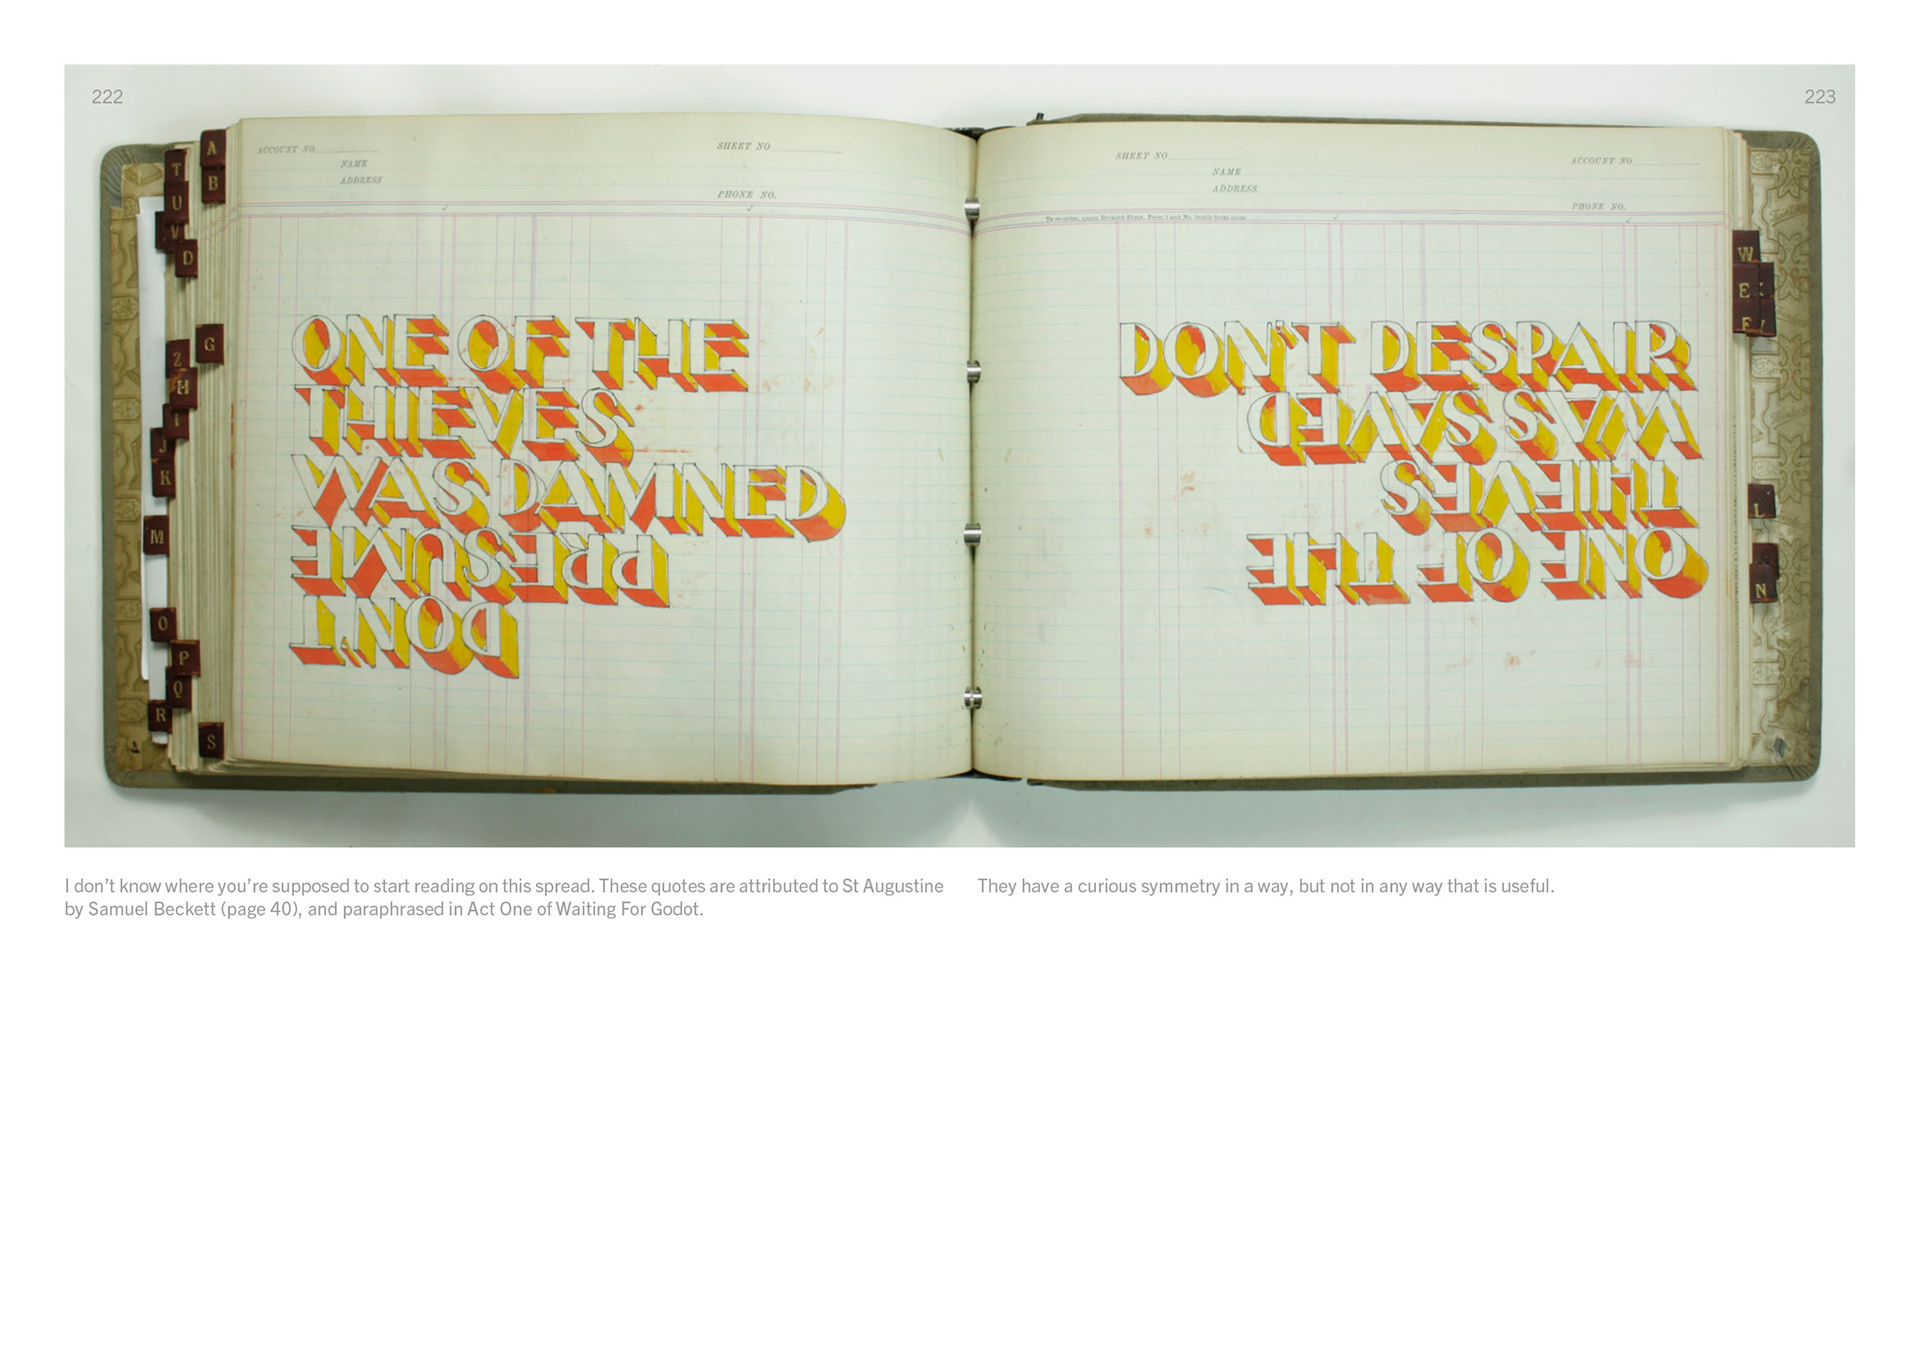 222
223
A
T
B
U
V
D
G
Z
H
I
J
K
M
O
P
Q
R
S
ACCOUNT NO
SHEET NO
NAME
ADDRESS
PHONE NO.
ONE OF THE
THIEVES
WAS DAMNED
PRESUME
DON'T
SHEET NO
ACCOUNT NO
NAME
ADDRESS
PHONE NO.
DON'T DESPAIR
WAS SAVED
THIEVES
ONE OF THE
W
E
F
L
N
I don't know where you're supposed to start reading on this spread. These quotes are attributed to St Augustine
by Samuel Beckett (page 40), and paraphrased in Act One of Waiting For Godot.
They have a curious symmetry in a way, but not in any way that is useful.